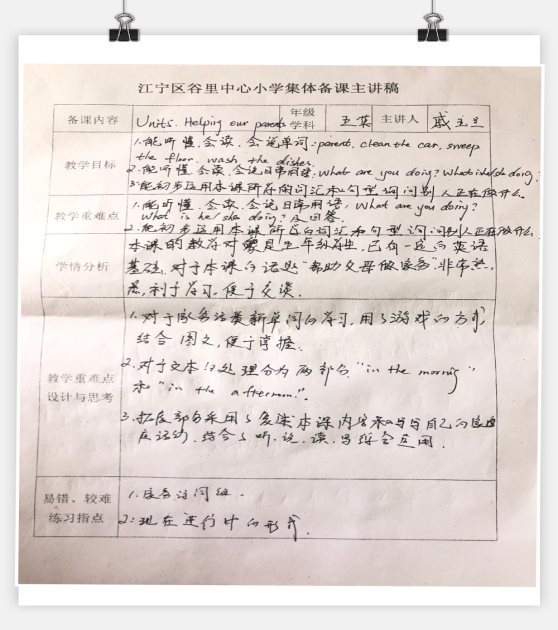 江宁区谷里中心小学集体备课主讲稿
备课内容 Unit5. Helping our parents 年级学科 五英 主讲人 戚玉兰
教学目标
1.能听懂、会读、会说单词:parent, clean the car, sweep
the floor, wash the dishes.
2.能听懂、会读、会说日常用语:What are you doing? What is he/she doing?
3.能初步运用本课所存的词汇和句型询问别人正在做什么。
教学重难点
1.能听懂、会读、会说日常用语:What are you doing?
What is he/she doing? 及回答.
2.能初步运用本课所存的词汇和句型询问别人正在做什么.
学情分析
本课的教存对象是五年级存生,已有一定的英语
基础,对于本课的话题"帮助父母做家务"非常熟
悉,利于学习,便于交谈.
教学重难点
设计与思考
1.对于家务活类新单词的学习,用了游戏的方式,
结合图文,便于掌握.
2.对于文本的处理分为两部分"in the morning"
和"in the afternoon".
3.拓展部分采用了复读本课内容和写写自己的家庭
活动,结合了听、说、读、写综合运用.
易错、较难
练习指点
1.家务活词组.
2.现在进行时的形式.